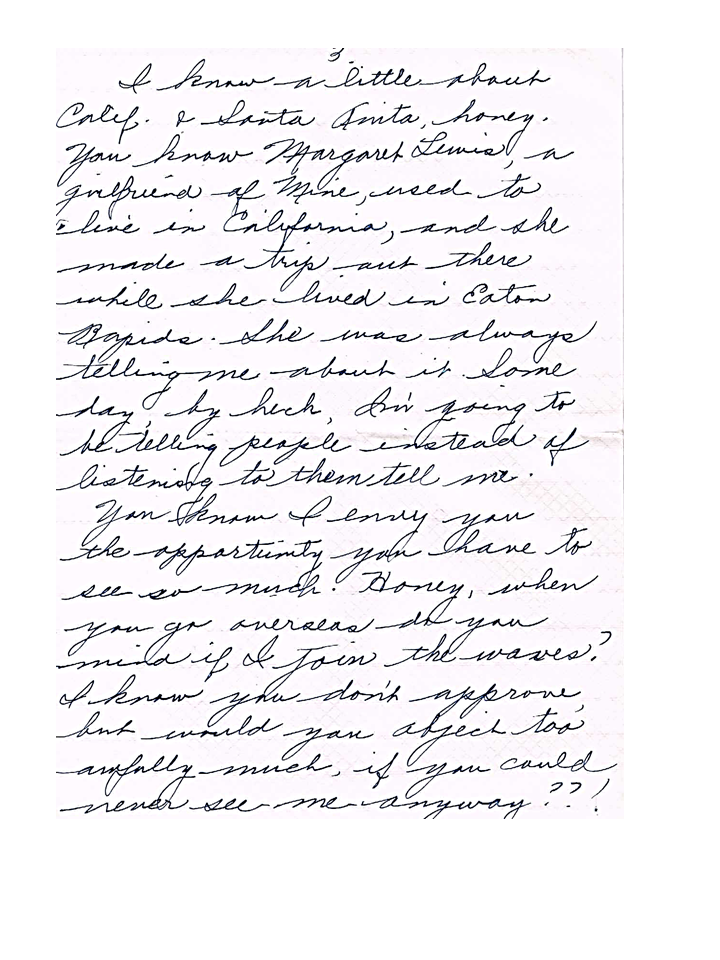 3
I know a little about
Calif. & Santa Anita, honey.
You know Margaret Lewis, a
girlfriend of Mine, used to
live in California, and she
made a trip out there
while she lived in Eaton
Rapids. She was always
telling me about it. Some
day, by heck, I'm going to
be telling people instead of
listening to them tell me.
You know I envy you
the opportunity you have to
see so much. Honey, when
you go overseas do you
mind if I join the waves?
I know you don't approve,
but would you object too
awfully much, if you could
never see me anyway??!